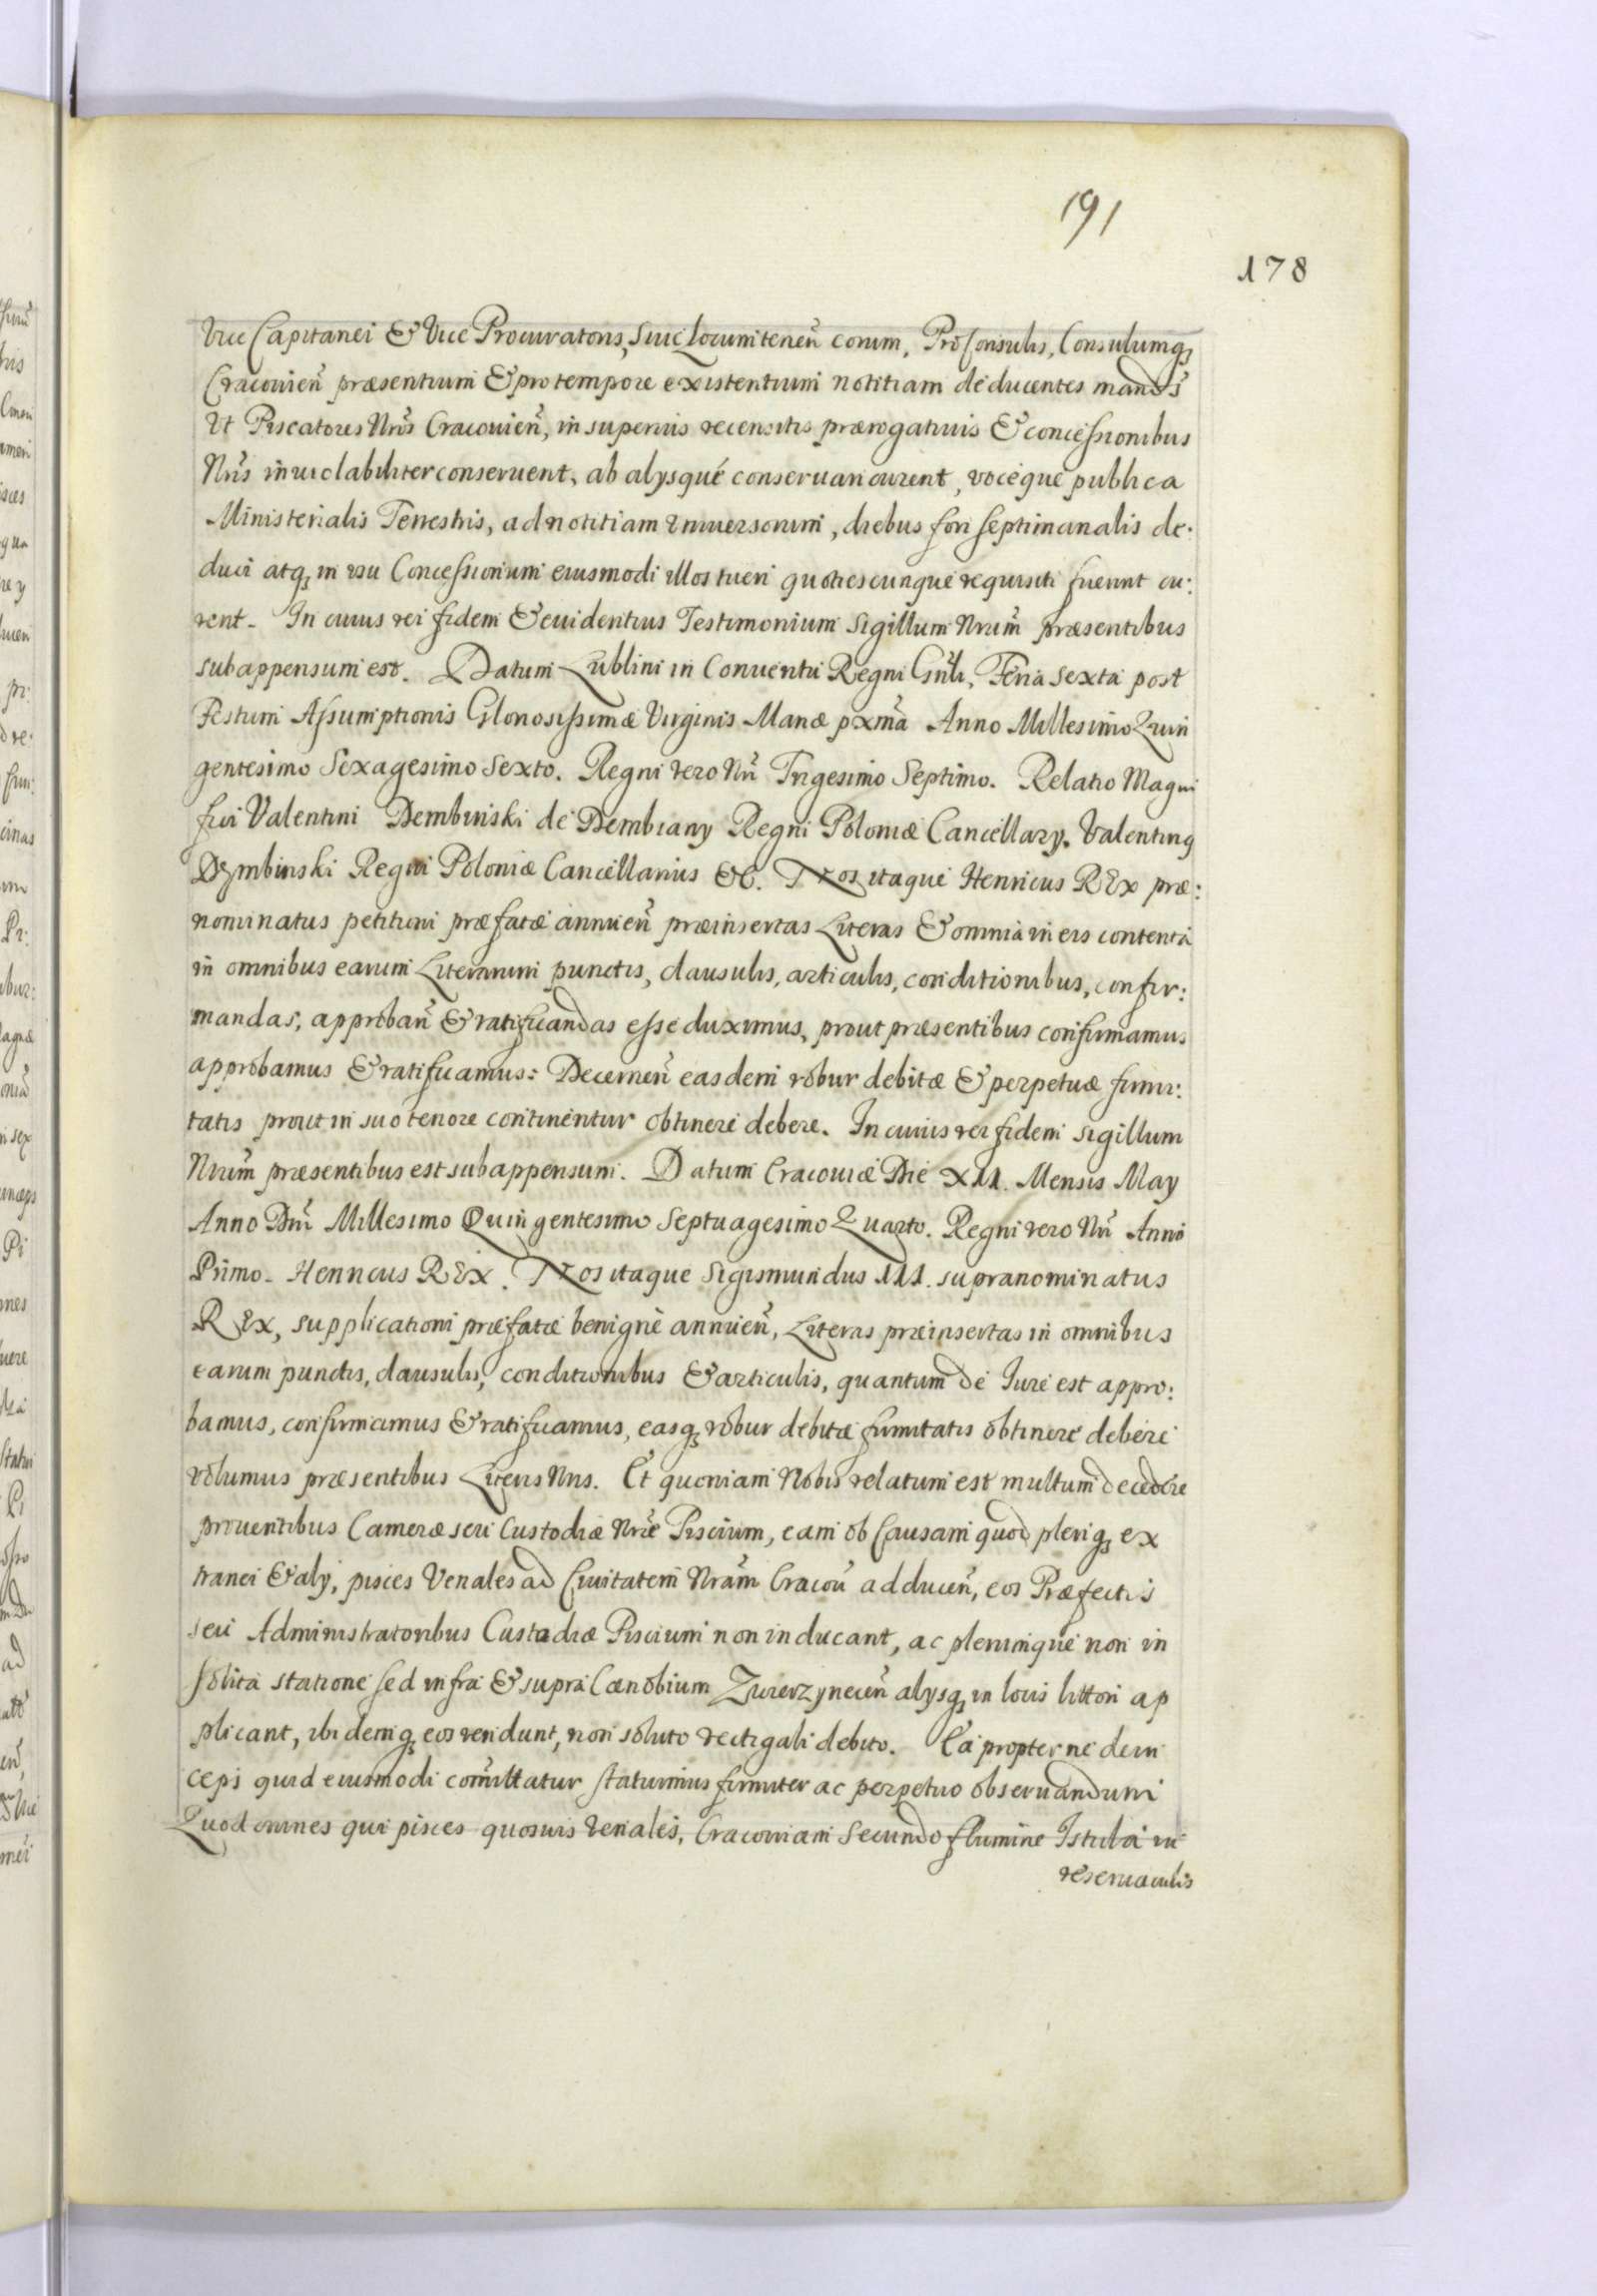 191
178
Vice Capitanei & Vice Procuratoris, Siue Locumitenen̄ eorum, Pro Consulis, Consulumq₃
Cracouien̄ præsentium & pro tempore existentium notitiam deducentes mandās
Ut Piscatores Nrōs Cracouien̄, in superius recensitis prærogatiuis & concessionibus
Nrīs inuiolabiliter conseruent, ab alysque conseruari curent, voceque publica
Ministerialis Terrestris, ad notitiam vniuersorum, diebus fori septimanalis de:
duci atq₃ in vsu Concessionum eiusmodi illos tueri quotiescunque requisiti fuerint cu:
rent. In cuius rei fidem & euidentius Testimonium Sigillum Nrum̄ præsentibus
subappensum est. Datum Lublini in Conuentu Regni Gn̄li, Feria sexta post
Festum Assumptionis Gloriosissimæ Virginis Mariæ px̄ma Anno Millesimo Quin
gentesimo Sexagesimo Sexto. Regni vero Nrī Trigesimo Septimo. Relatio Magni
fici Valentini Dembinski de Dembiany Regni Poloniæ Cancellary. Valentin9
Dembinski Regni Poloniæ Cancellarius &c. Nos itaque Henricus REx præ:
nominatus petitioni præfatæ annuen̄ præinsertas Literas & omnia in eis contenta
in omnibus earum Literarum punctis, clausulis, articulis, conditionibus, confir:
mandas, approban̄ & ratificandas esse duximus, prout præsentibus confirmamus
approbamus & ratificamus: Decernen̄ easdem robur debitæ & perpetuæ firmi:
tatis prout in suo tenore continentur obtinere debere. In cuius rei fidem sigillum
Nrum̄ præsentibus est subappensum. Datum Cracouiæ Die XII. Mensis May
Anno Dnī Millesimo Quingentesimo Septuagesimo Quarto. Regni vero Nrī Anno
Primo. Henricus REx. Nos itaque Sigismundus III. supranominatus
REx, supplicationi præfatæ benignè annuen̄, Literas præinsertas in omnibus
earum punctis, clausulis, conditionibus & articulis, quantum de Iure est appro:
bamus, confirmamus & ratificamus, easq₃ robur debitæ firmitatis obtinere debere
volumus præsentibus Literis Nris. Et quoniam Nobis relatum est multum decedere
prouentibus Cameræ seu Custodiæ Nrǣ Piscium, eam ob Causam quod pleriq₃ ex
tranei & aly, pisces Venales ad Ciuitatem Nram̄ Cracou̅ adducen̄, eos Præfectis
seu Administratoribus Custodiæ Piscium non inducant, ac plerunque non in
solita statione sed infra & supra Cænobium Zwierzynecen̄ alysq₃ in locis littori ap
plicant, ibidemq₃ eos vendunt, non soluto vectigali debito. Ea propter ne dein
ceps quid eiusmodi com̄ittatur statuimus firmiter ac perpetuo obseruandum
Quod omnes qui pisces quosuis venales, Cracouiam Secundo flumine Istula in
reseruaculis